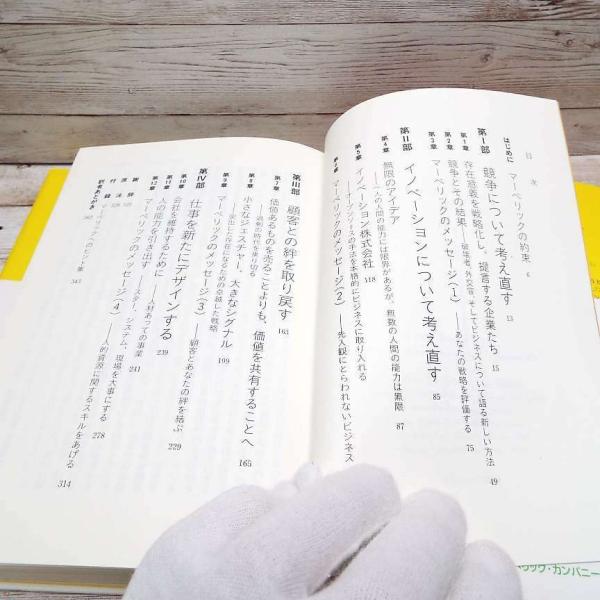 目次
はじめに マーベリックの約束 6
第Ⅰ部 競争について考え直す 13
第1章 存在意義を戦略化し、提言する企業たち 15
第2章 競争とその結果 ——破壊者、外交官、そしてビジネスについて語る新しい方法 49
第3章 マーベリックのメッセージ(1) ——あなたの戦略を評価する 75
第Ⅱ部 イノベーションについて考え直す 85
第4章 無限のアイデア ——一人の人間の能力には限界があるが、無数の人間の能力は無限 87
第5章 イノベーション株式会社 118
の手法を本格的にビジネスに取り入れる
第6章 マーベリックのメッセージ(2) ——先入観にとらわれないビジネス
第Ⅲ部 顧客との絆を取り戻す 163
第7章 価値あるものを売ることよりも、価値を共有することへ 165
——過剰の時代を乗り切る
第8章 小さなジェスチャー、大きなシグナル 199
——突出した存在になるための卓越した戦略
第9章 マーベリックのメッセージ(3) ——顧客とあなたの絆を結ぶ 229
第Ⅳ部 仕事を新たにデザインする 239
第10章 会社を維持するために ——人材あっての事業 241
第11章 人の能力を引き出す ——スター、システム、現場を大事にする 278
第12章 マーベリックのメッセージ(4) ——人的資源に関するスキルをあげる 314
謝辞
付録 マーベリックへのヒント集 343
訳者あとがき
ック・カンパニー